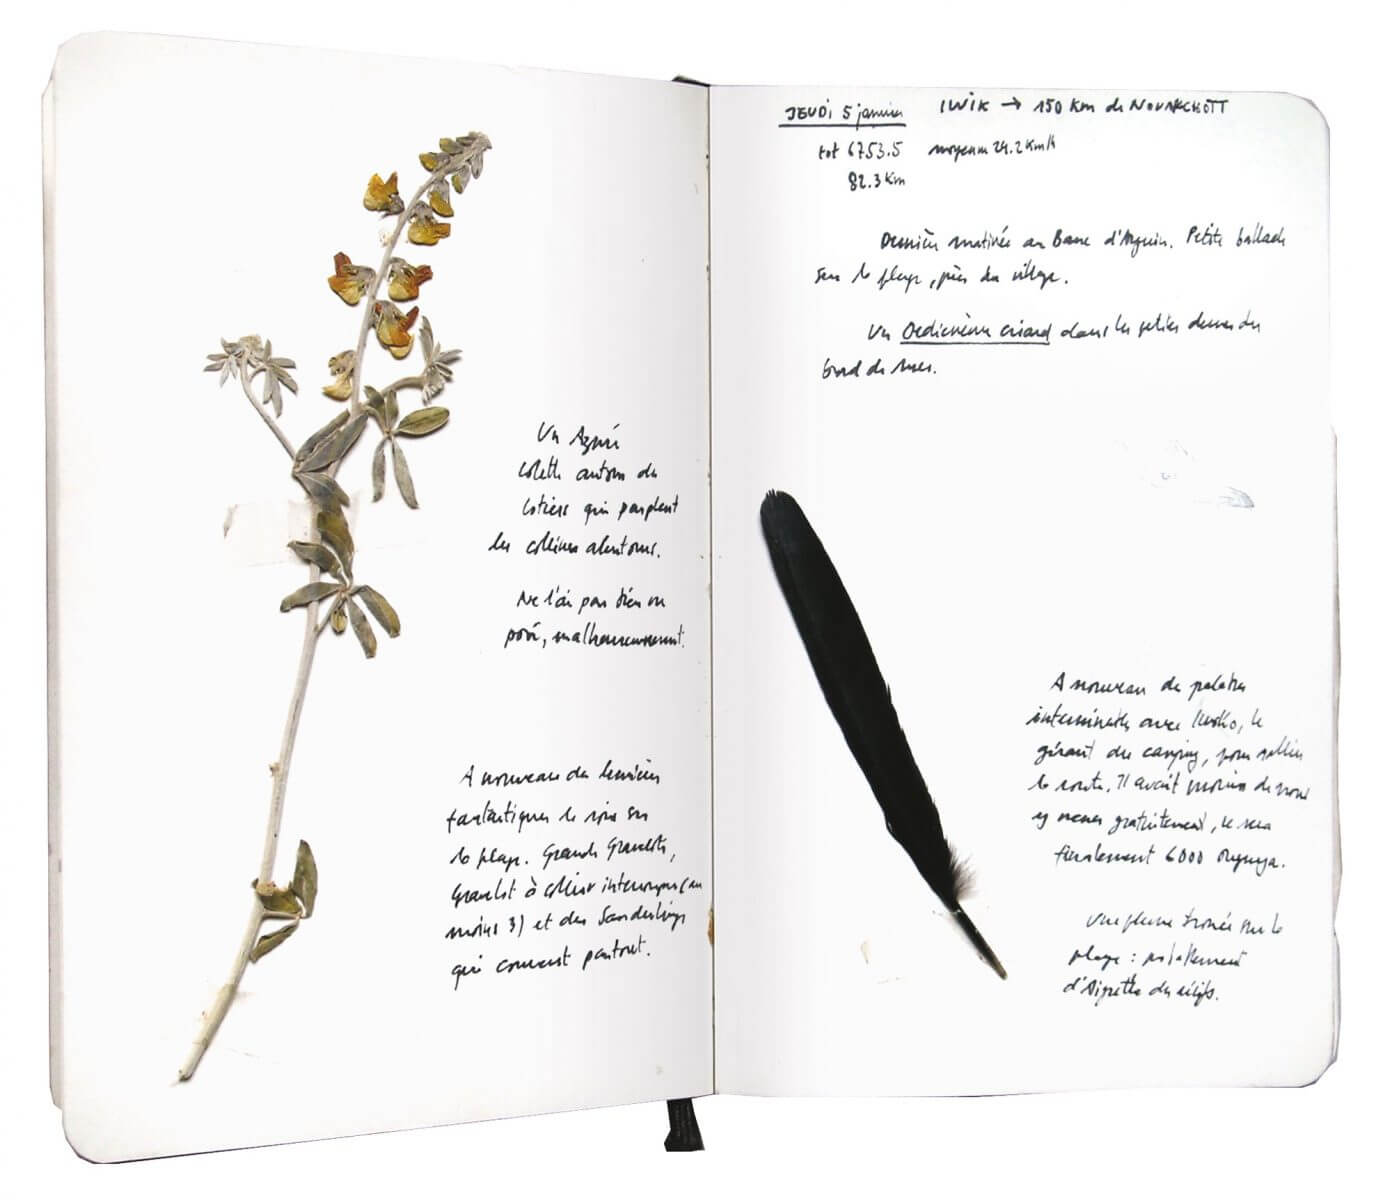 Un Azuré
Colette autour des
lotiers qui peuplent
les collines alentours.
Ne l'ai pas bien vu
posé, malheureusement.
A nouveau des lumières
fantastiques le soir sur
la plage. Grands Gravelots,
Gravelot à collier interrompu (au
moins 3) et des Sanderlings
qui courent partout.
JEUDI 5 janvier IWIK → 150 km de NOUAKCHOTT
tot 6753.5 moyenne 24.2 km/h
82.3 km
Dernière matinée au Banc d'Arguin. Petite ballade
sur la plage, près du village.
Un Oedicnème criard dans les petites dunes du
bord de mer.
A nouveau des palabres
interminables avec le
gérant du camping, pour rallier
la route. Il avait promis de nous
y mener gratuitement, ce sera
finalement 6000 ouguya.
Une plume trouvée sur la
plage : probablement
d'Aigrette des récifs.